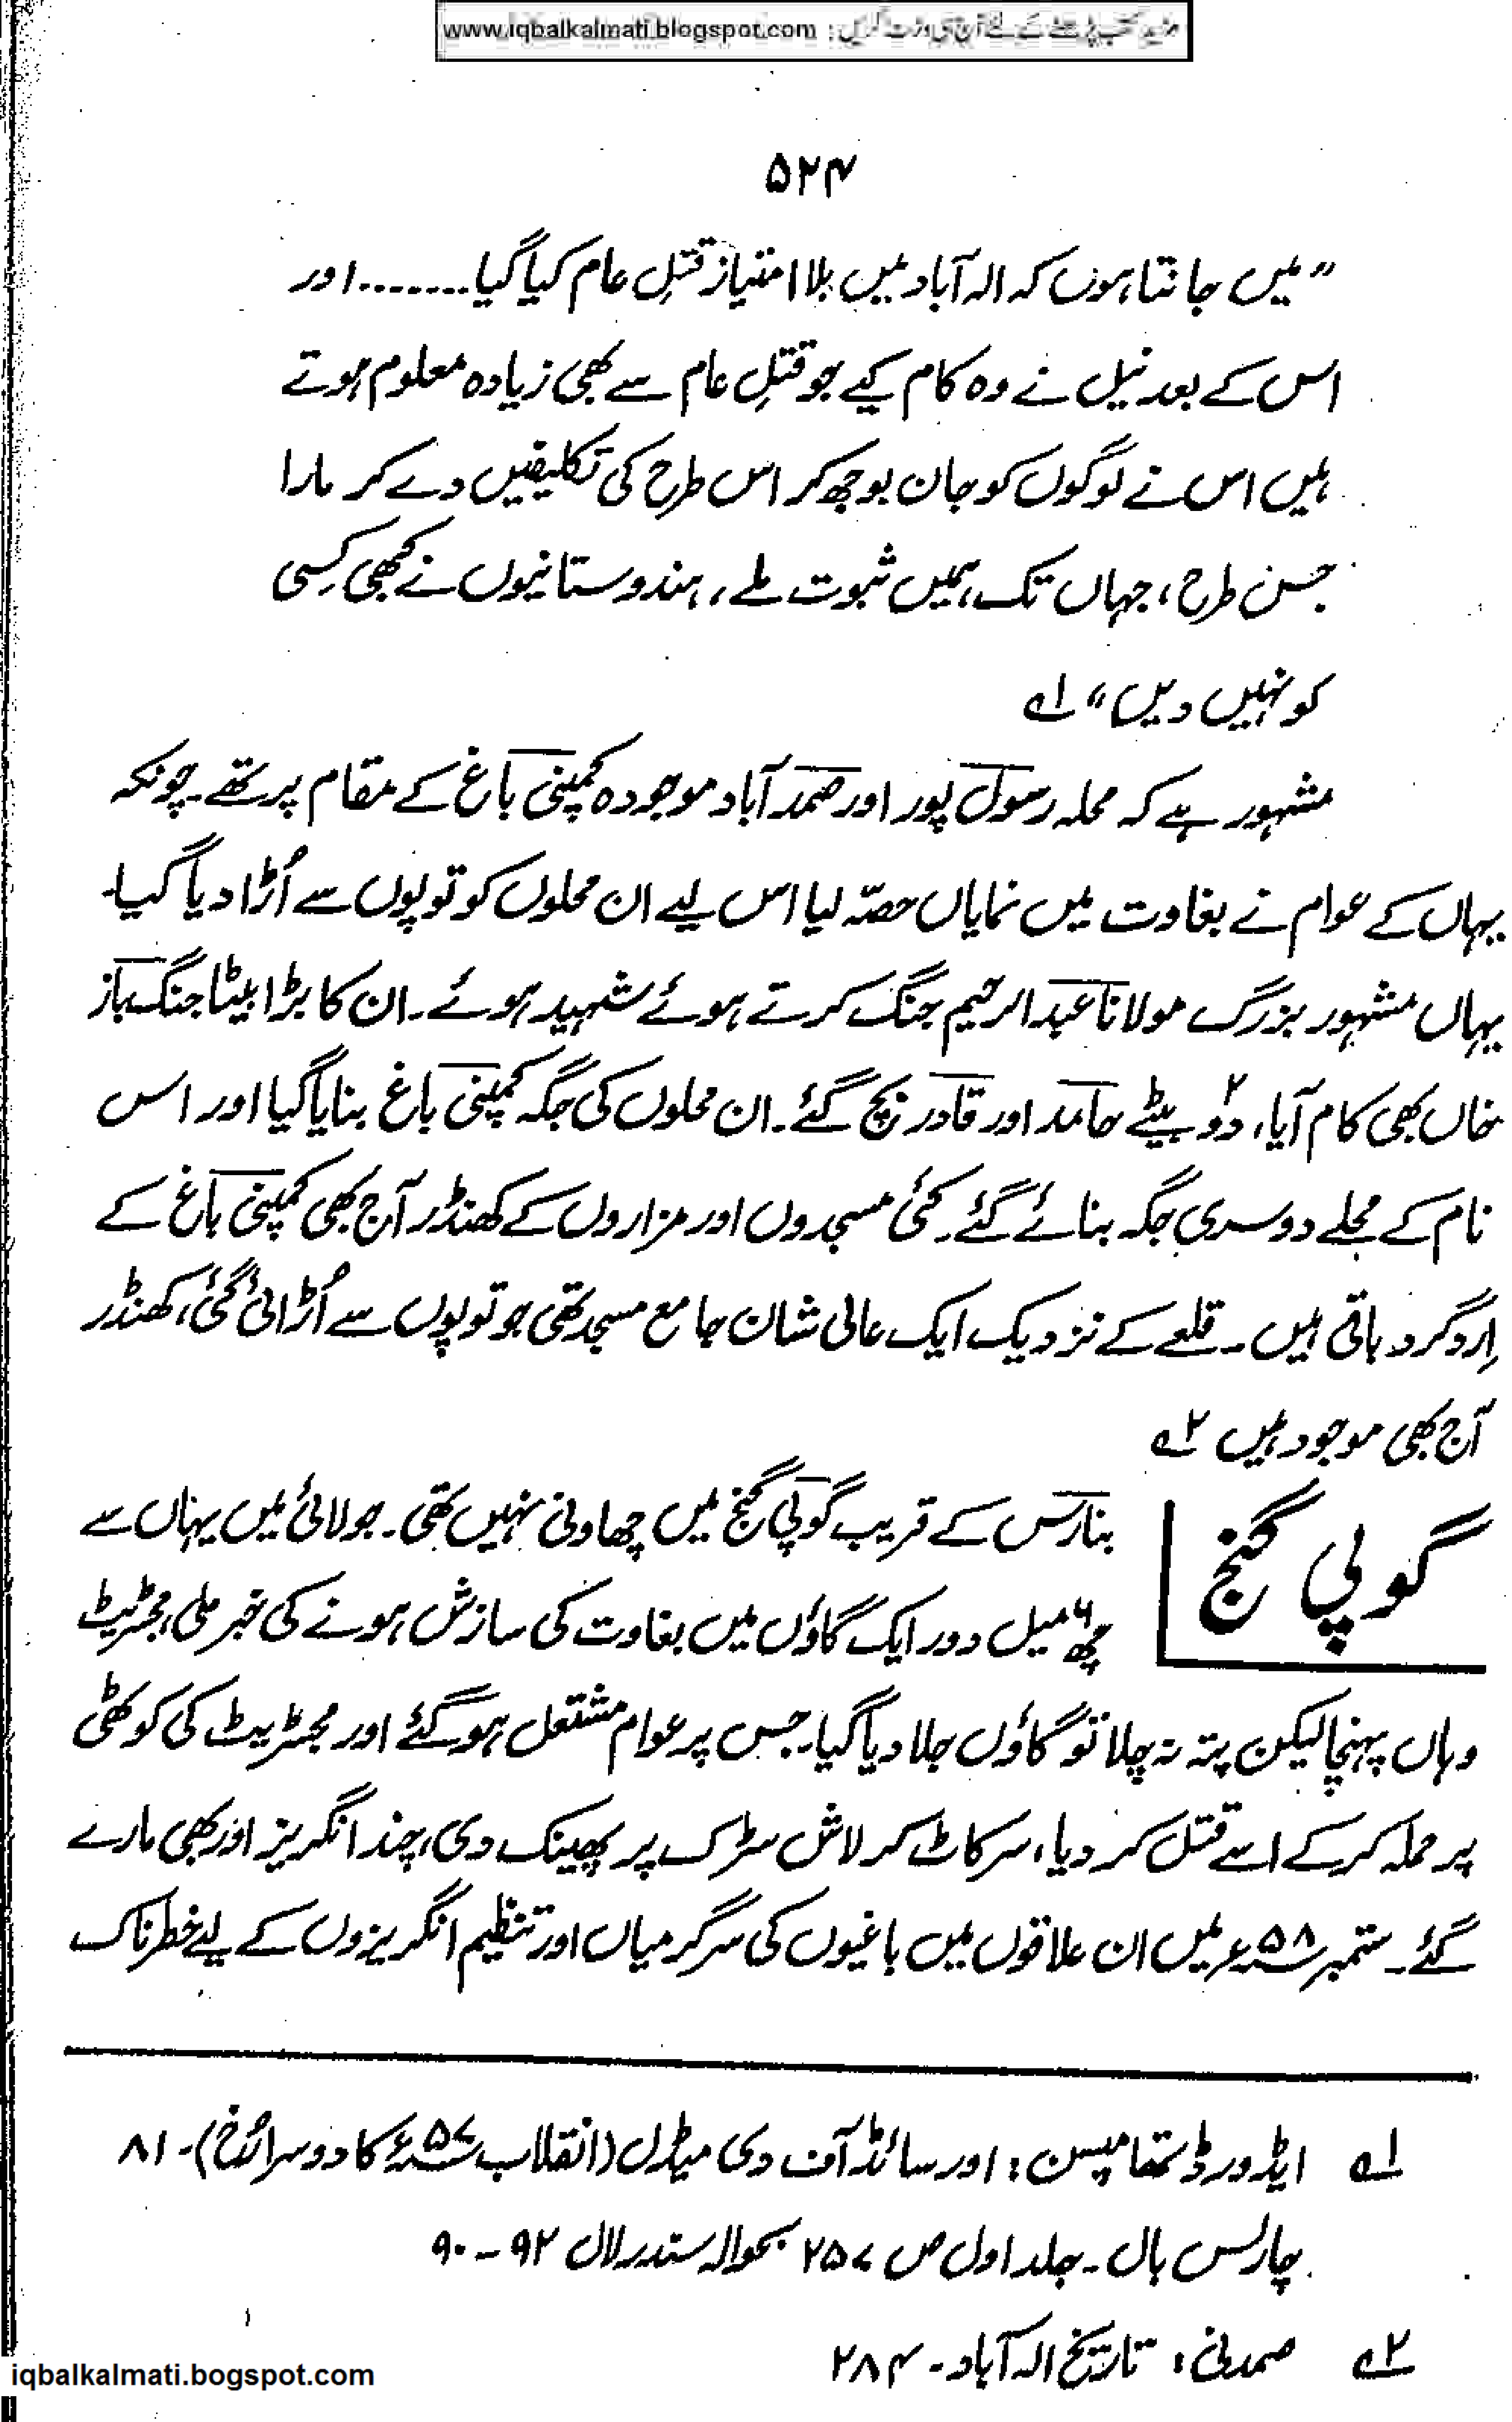 مزید کتب پڑھنے کے لئے آج ہی وزٹ کریں : www.iqbalkalmati.blogspot.com
۵۲۴
”میں جانتا ہوں کہ الہ آباد میں بلا امتیاز قتلِ عام کیا گیا ........ اور
اس کے بعد نیل نے وہ کام کیے جو قتلِ عام سے بھی زیادہ معلوم ہوتے
ہیں اس نے لوگوں کو جان بوجھ کر اس طرح کی تکلیفیں دے کر مارا
جس طرح، جہاں تک ہمیں ثبوت ملے، ہندوستانیوں نے کبھی کِسی
کو نہیں دیں“ ۱ے
مشہور ہے کہ محلہ رسول پور اور صمد آباد موجودہ کمپنی باغ کے مقام پر تھے۔ چونکہ
یہاں کے عوام نے بغاوت میں نمایاں حصّہ لیا اس لیے ان محلوں کو توپوں سے اُڑا دیا گیا۔
یہاں مشہور بزرگ مولانا عبد الرحیم جنگ کرتے ہوئے شہید ہوئے۔ ان کا بڑا بیٹا جنگ باز
خاں بھی کام آیا، دو۲ بیٹے حامد اور قادر بچ گئے۔ ان محلوں کی جگہ کمپنی باغ بنایا گیا اور اس
نام کے محلے دوسری جگہ بنائے گئے۔ کئی مسجدوں اور مزاروں کے کھنڈر آج بھی کمپنی باغ کے
اِرد گرد باقی ہیں۔ قلعے کے نزدیک ایک عالی شان جامع مسجد تھی جو توپوں سے اُڑائی گئی، کھنڈر
آج بھی موجود ہیں ۲ے
گوپی گنج
بنارس کے قریب گوپی گنج میں چھاونی نہیں تھی۔ جولائی میں یہاں سے
چھ۶ میل دور ایک گاؤں میں بغاوت کی سازش ہونے کی خبر ملی، مجسٹریٹ
وہاں پہنچا لیکن پتہ نہ چلا تو گاؤں جلا دیا گیا۔ جس پر عوام مشتعل ہو گئے اور مجسٹریٹ کی کوٹھی
پر حملہ کر کے اسے قتل کر دیا، سر کاٹ کر لاش سڑک پر پھینک دی، چند انگریز اور بھی مارے
گئے۔ ستمبر ۵۸ء میں ان علاقوں میں باغیوں کی سرگرمیاں اور تنظیم انگریزوں کے لیے خطرناک
۱ے ایڈورڈ تھامپسن: اور سائڈ آف دی میڈل (انقلاب ۵۷ء کا دوسرا رُخ)۔ ۸۱
چارلس بال۔ جلد اول ص ۲۵۷ بحوالہ سندر لال ۹۲ – ۹۰
۲ے صمدنی: تاریخ الہ آباد۔ ۲۸۴
iqbalkalmati.bogspot.com